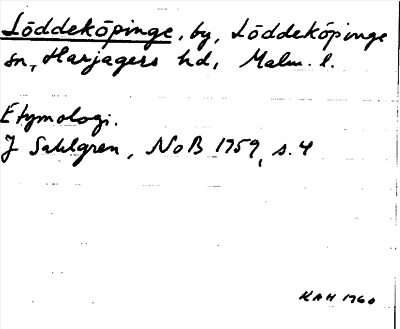 Löddeköpinge, by, Löddeköpinge
sn, Harjagers hd, Malm. l.
Etymologi.
J Sahlgren, NoB 1959, s. 4
KAH 1960